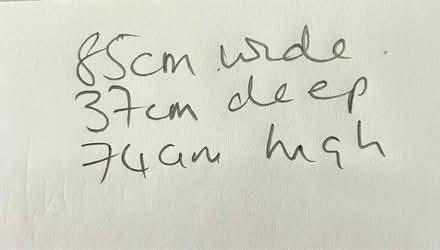 85cm wide.
37cm deep
74cm high